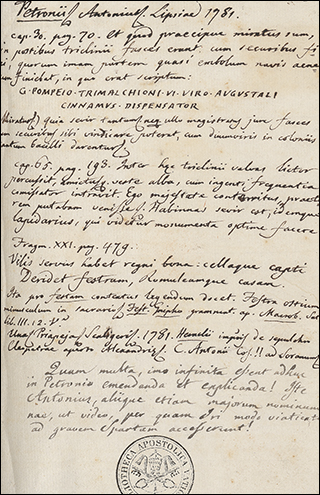 Petronii Antonius Lipsiae 1781.
cap. 30. pag. 70. Et quod praecipue miratus sum,
in postibus triclinii fasces erant cum securibus fi
i, quorum imam partem quasi embolum navis aene
um finiebat, in quo erat scriptum:
G·POMPEIO·TRIMALCHIONI·VI·VIRO·AUGUSTALI
CINNAMUS·DISPENSATOR
Miratus quia sevir tantum magistratus jure fasces
securibus sibi vindicare poterat, cum duumviris in coloniis
tantum bacilli darentur,
cap. 65. pag. 198. Inter haec triclinii valvas lictor
percussit, amictusque veste alba, cum ingenti frequentia
comissator intravit. Ego majestate conterritus, praeto
rem putabam venisse. Habinnas sevir est, idemque
lapidarius, qui videtur monumenta optime facere
Fragm. XXI. pag. 479.
Vilis servus habet regni bona: cellaque capti
Deridet festram, Romuleamque casam.
Ita pro festam contextus legendum docet. Festra ostium
minusculum in sacrariis Fest. ap. Macrob. Sat
lib. III. 12.
Priapeja Scaligeri. 1781. de sepulchro
Cleopatrae apud Alexandriam C. Antonii Cos!! ad Soranum
Quam multa, imo infinita essent adhuc
in Petronio emendanda et explicanda! Iste
Antonius, aliique etiam majorum nominum
nae, ut video, per quam modo
ad gravem Spartam accesserunt!
BIBLIOTHECA APOSTOLICA VATICANA